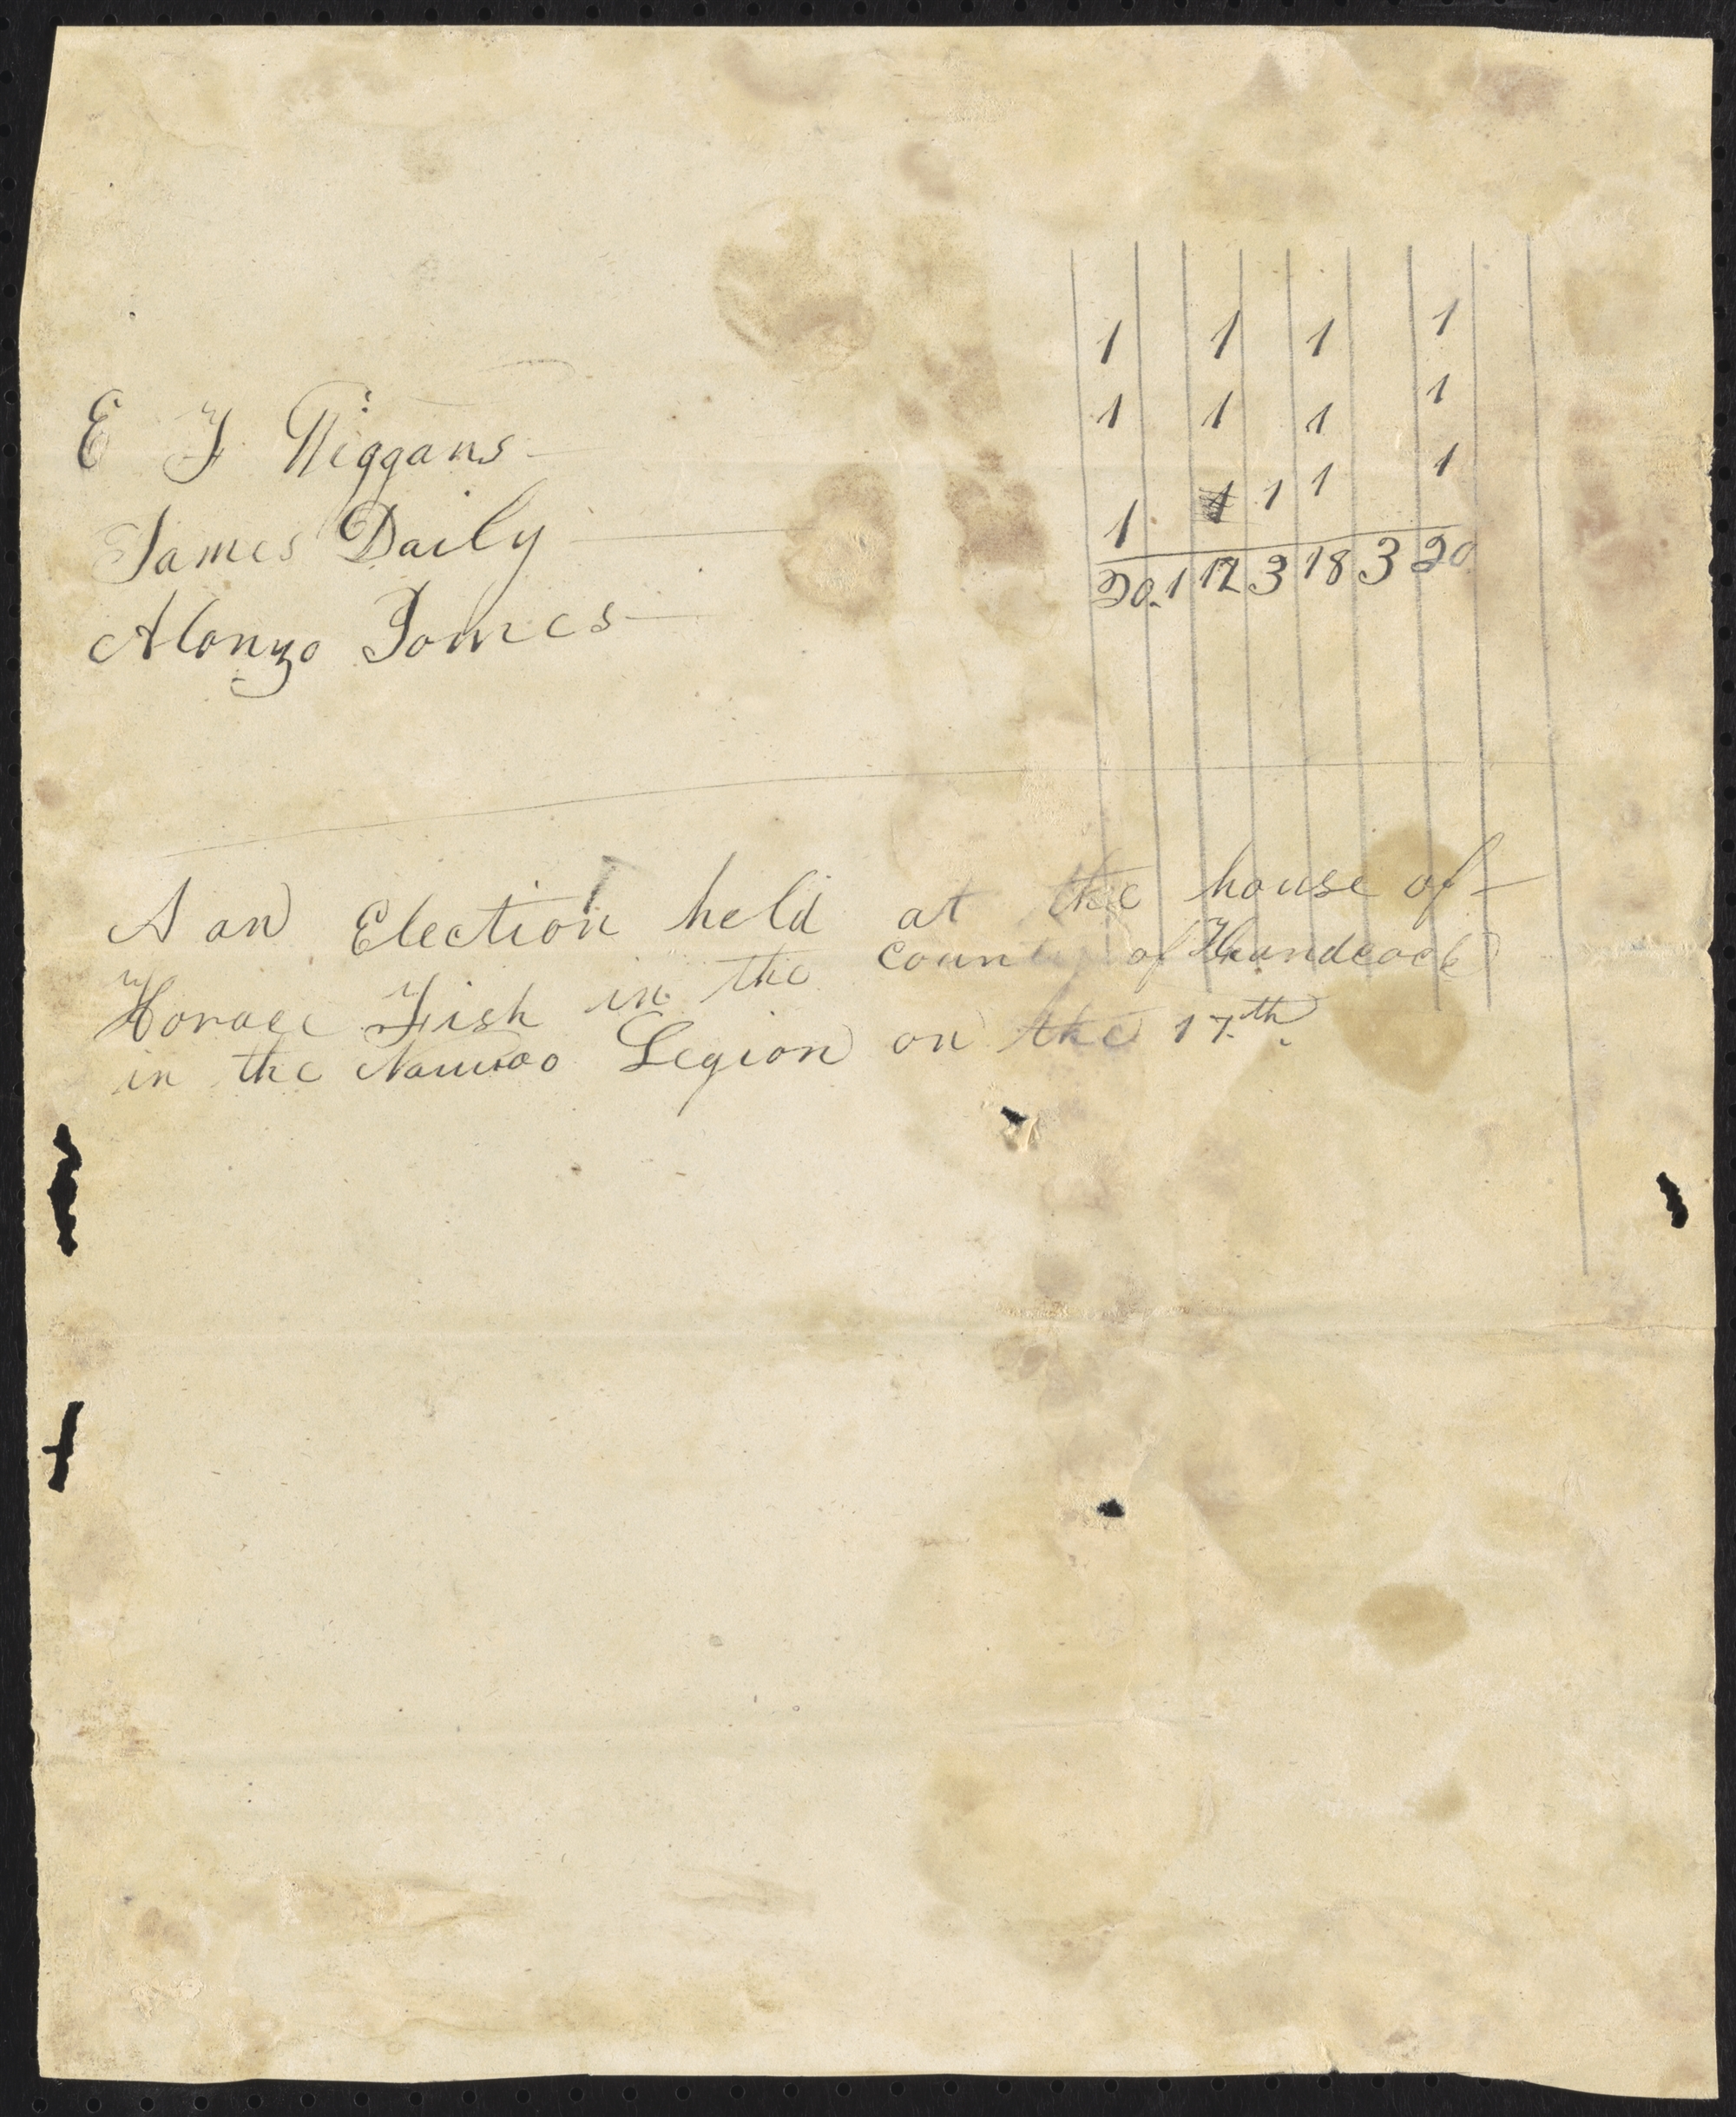 1 1 1 1
1 1 1 1
E F Wiggans
1 1 1 1
James Daily
20. 1 17 3 18 3 20
Alonzo Jomes
A an Election held at the house of
Horace Fish in the county of Handcock
in the Nauvoo Legion on the 17th.